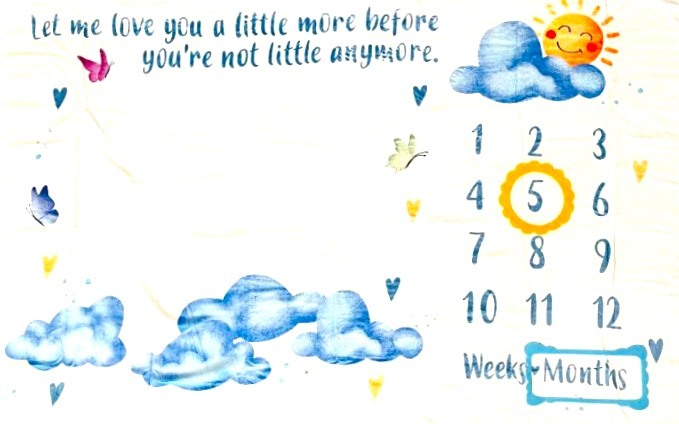 Let me love you a little more before
you're not little anymore.
1 2 3
4 5 6
7 8 9
10 11 12
Weeks Months